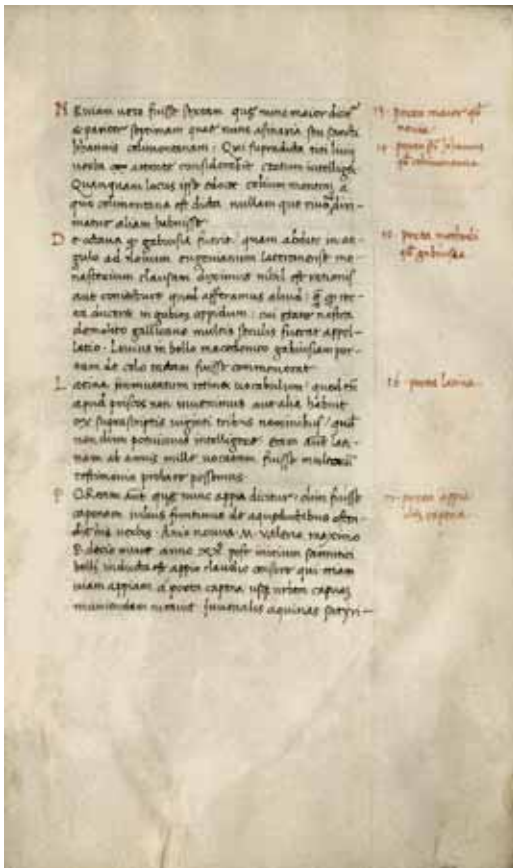 N Eviam vero fuisse sextam que nunc maior dicit
& pariter septimam quae nunc asinaria seu sancti
Iohannis celimontanam: Qui supradicta titi livii
verba attente considerabit, certum intelliget
Quanquam locus ipse edocet celium montem a
quo celimontana est dicta nullam que muro diri-
matur aliam habuisse.
D e octava gabiusa fuerit, quam in an-
gulo ad rivum lateranensis mo-
nasterium clausam diximus nihil est rationis
aut coniecture quod afferamus aliud:
ducere in gabios oppidum: cui etate nostra
demolito gallicano multis seculis fuerat appel-
latio. Livius in bello macedonico gabiusam por-
nam de celo tactam fuisse commemorat
L atina primevatum retinet vocabulum: quod tn
apud priscos non invenimus aut alia habuit
ex suprascriptis viginti tribus nominibus, quod
non dum potuimus intelligere, etam aut lati-
nam ab annis mille vocatam fuisse
testimonia probare possemus
P ORtam aut que nunc appia dicitur, olim fuisse
capenam iulius frontinus de aqueductibus osten-
dit his verbis. Anio novus M. valerio maximo
P. decio mure anno XXX post initium samnitici
belli inducta est appio claudio censore qui etiam
viam appiam a porta capena usq urbem capuam
muniendam curavit Iuvenalis aquinas satyri-
13. porta maior
nevia.
14. porta sci Iohannis
celimontana
15. porta
gabiusa
16. porta latina.
17. porta appia
olim capena